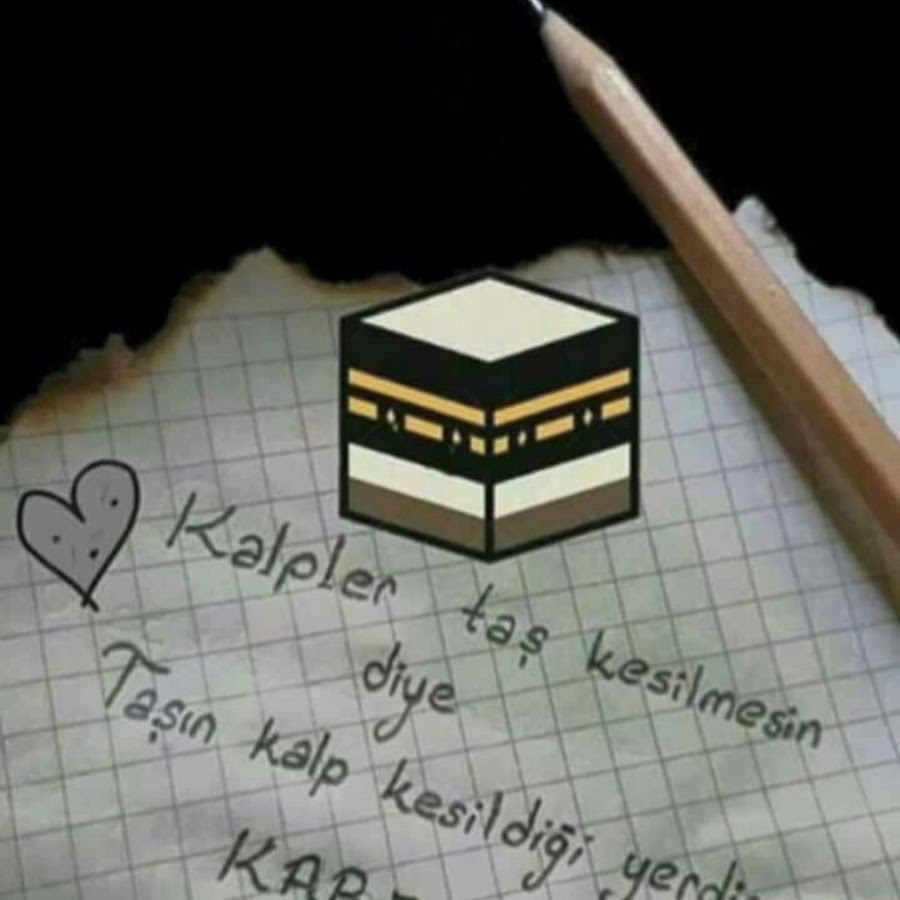 Kalpler taş kesilmesin
diye
Taşın kalp kesildiği